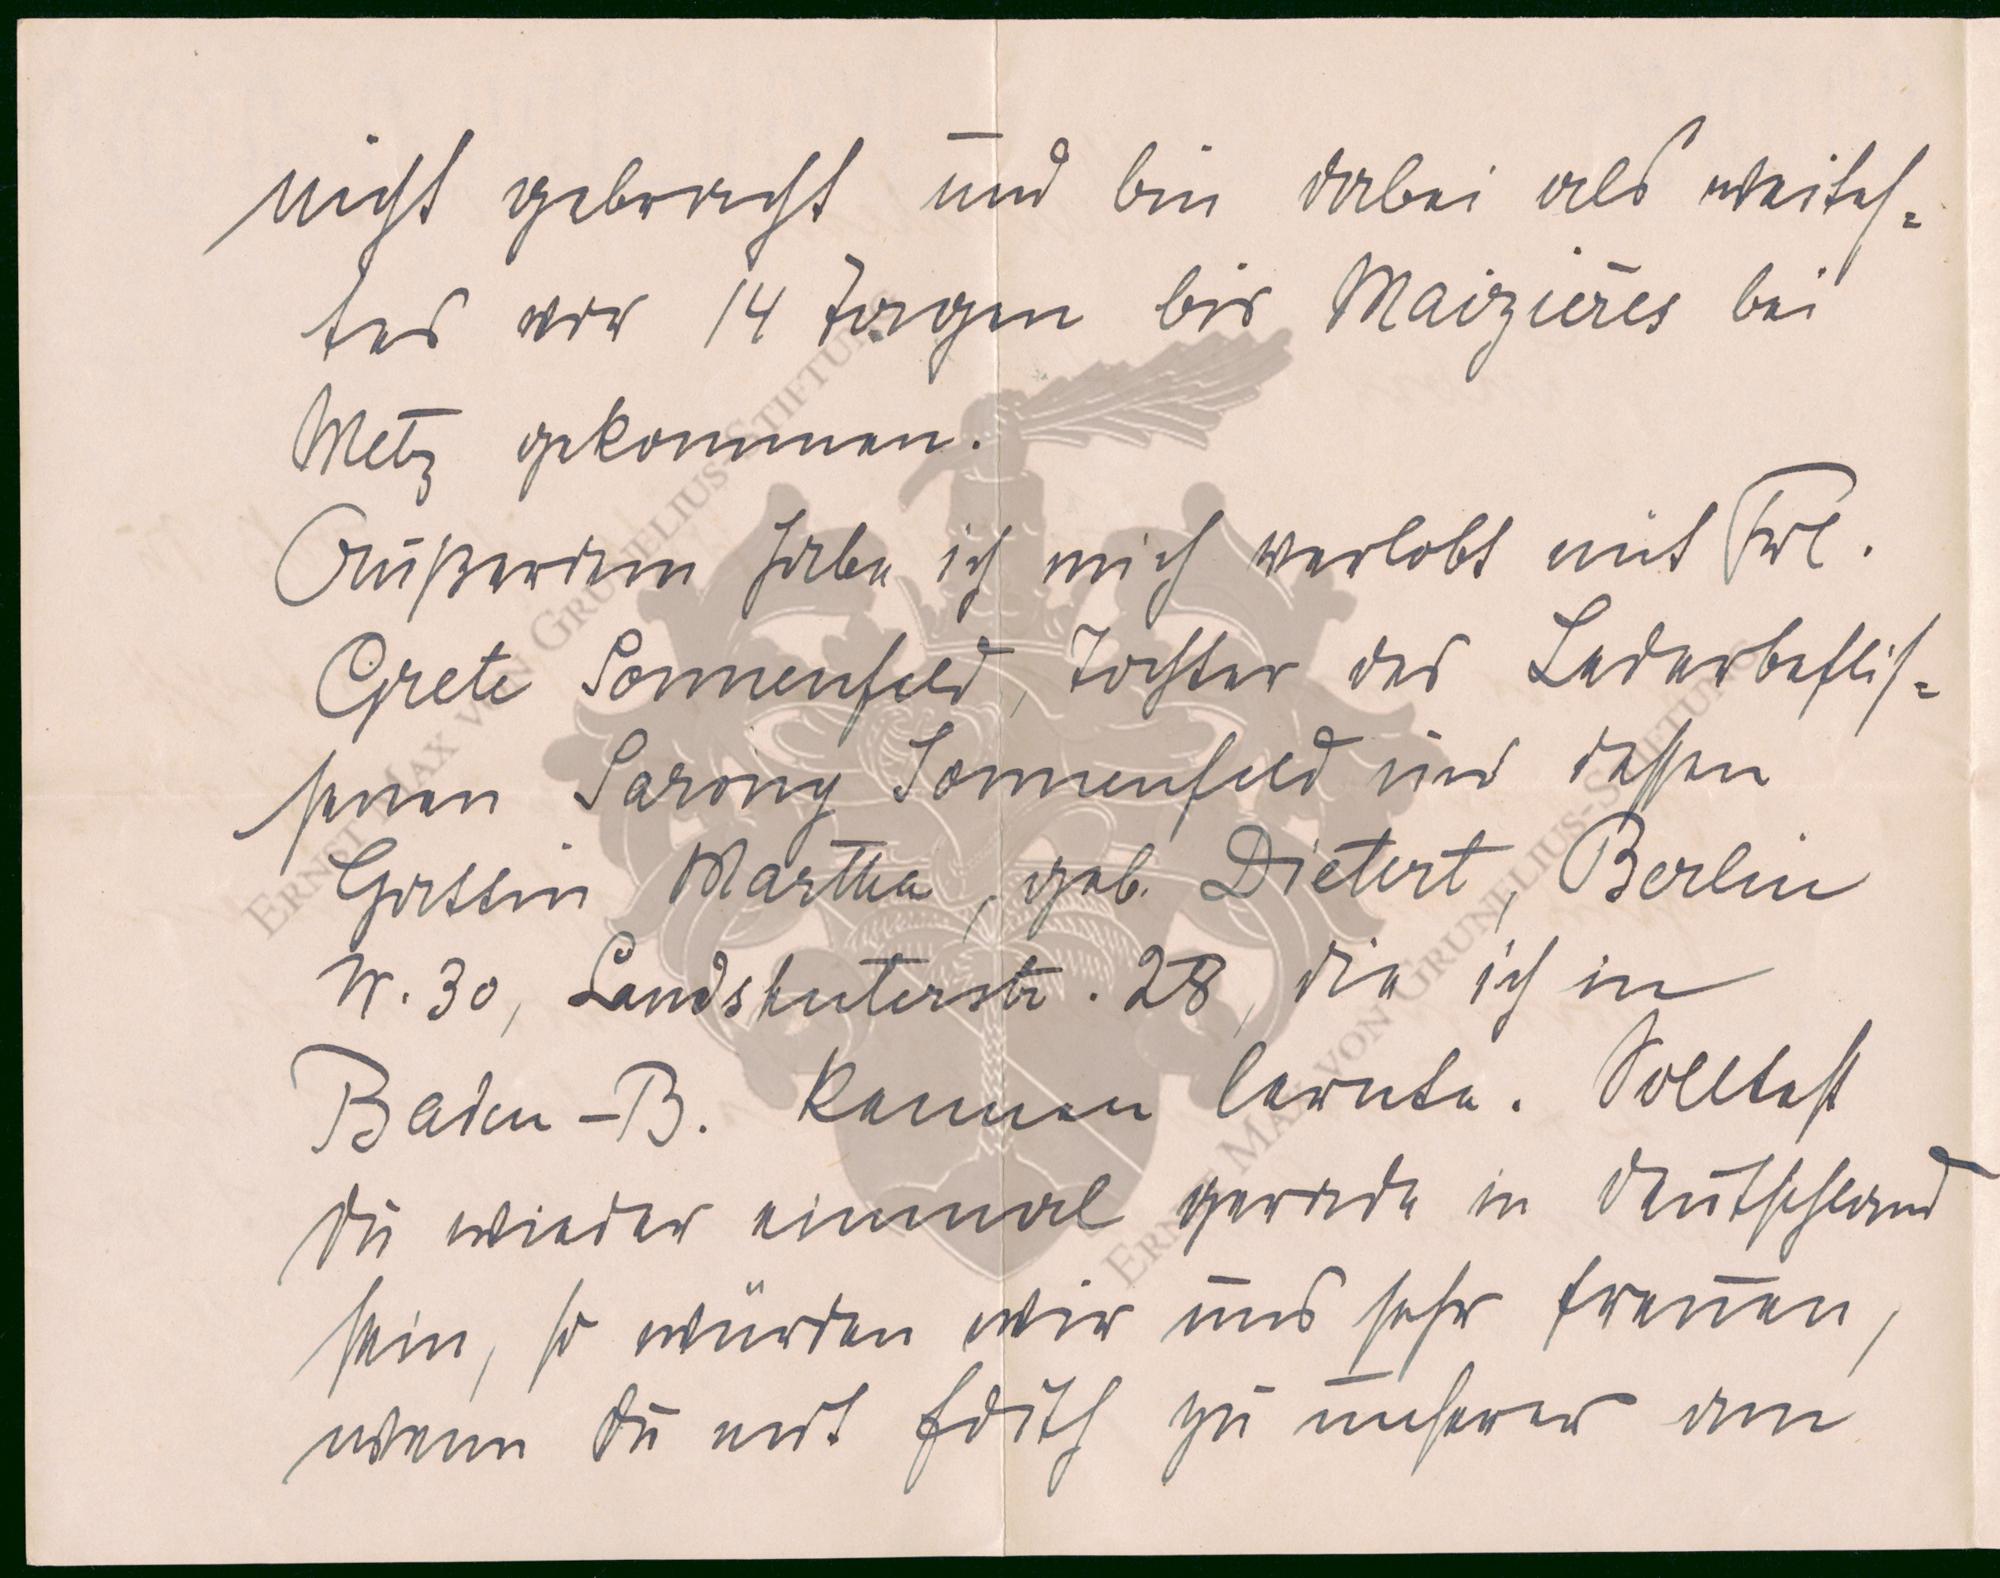 nicht gebracht und bin dabei als weites-
tes vor 14 Tagen bis Maizières bei
Metz gekommen.
Außerdem habe ich mich verlobt mit Frl.
Grete Sonnenfeld, Tochter des Lederbeflis-
senen Sarony Sonnenfeld und dessen
Gattin Martha, geb. Dietert, Berlin
W. 30, Landshuterstr. 28, die ich in
Baden-B. kennen lernte. Solltest
Du wieder einmal gerade in Deutschland
sein, so würden wir uns sehr freuen,
wenn Du mit Edith zu unserer am
ERNST MAX VON GRUNELIUS-STIFTUNG
ERNST MAX VON GRUNELIUS-STIFTUNG